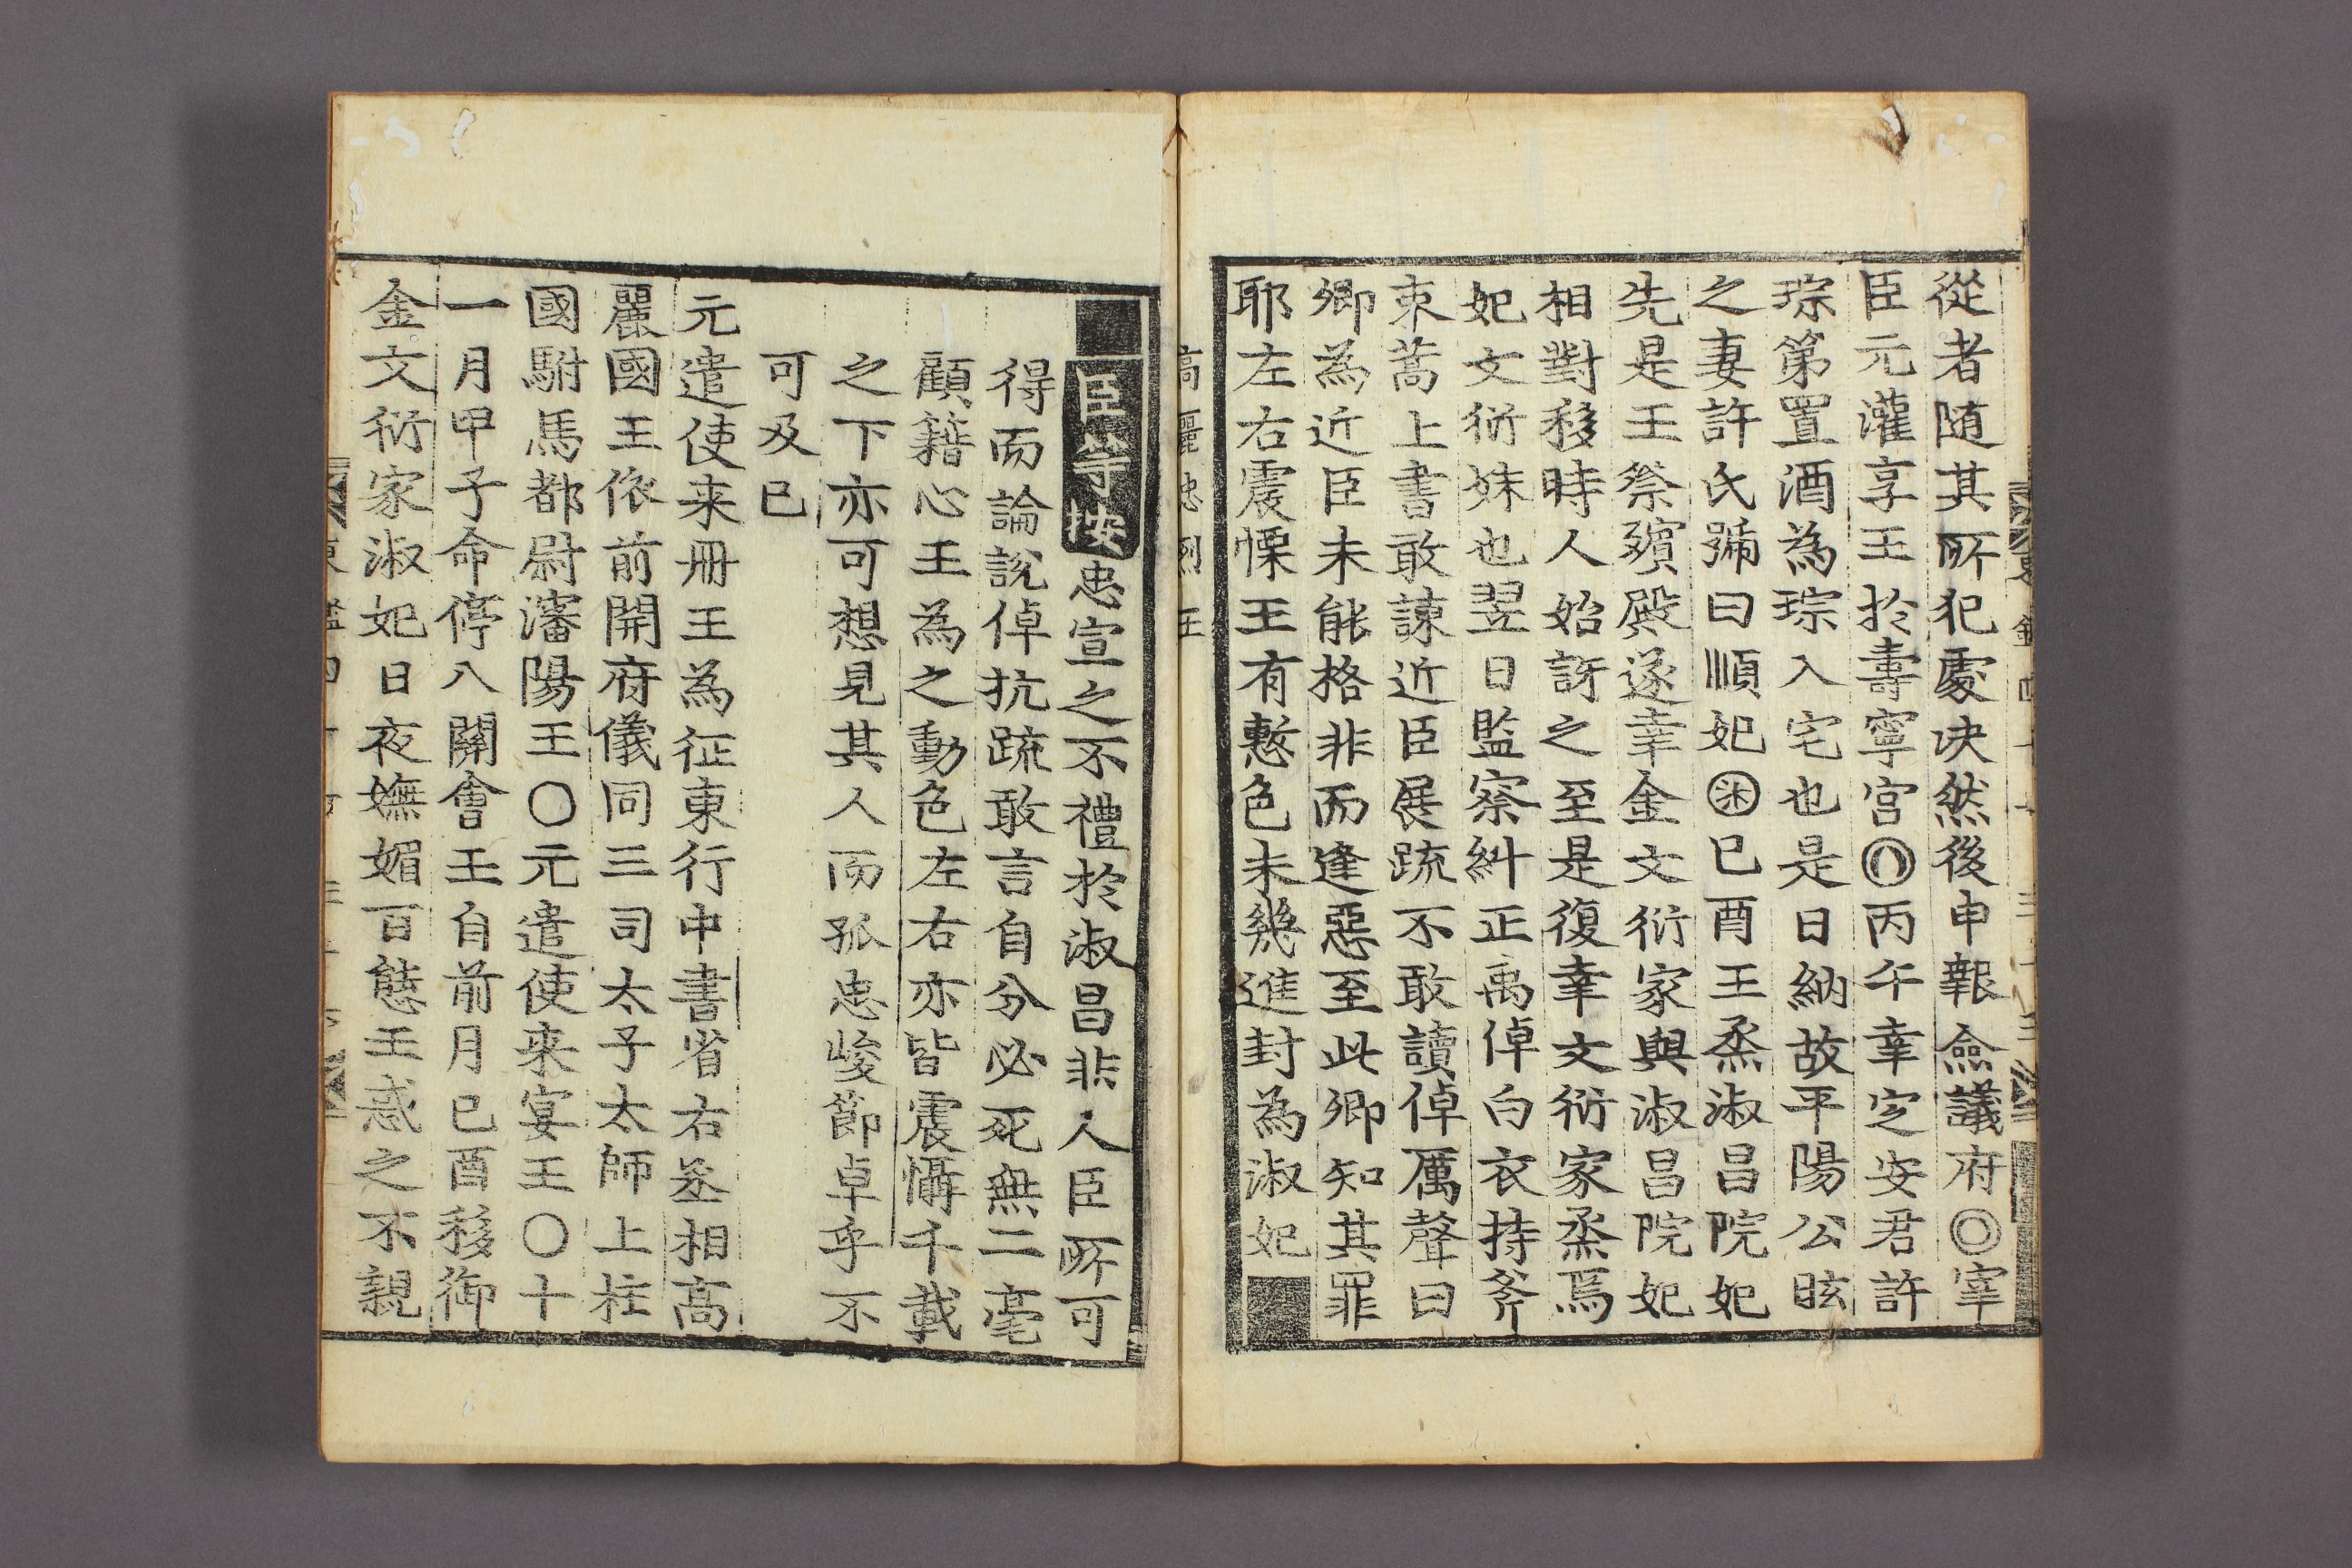 從者随其所犯處决然後申報僉議府○宰
臣元灌享王於壽寧宮○丙午幸定安君許
琮第置酒為琮入宅也是日納故平陽公昡
之妻許氏號曰順妃○己酉王烝淑昌院妃
先是王祭殯殿遂幸金文衍家與淑昌院妃
相對移時人始訝之至是復幸文衍家烝焉
妃文衍妹也翌日監察糾正禹倬白衣持斧
束藁上書敢諫近臣展疏不敢讀倬厲聲曰
卿為近臣未能格非而逢惡至此卿知其罪
耶左右震慄王有慙色未幾進封為淑妃
高麗忠烈王
臣等按忠宣之不禮於淑昌非人臣所可
得而論說倬抗疏敢言自分必死無二毫
顧籍心王為之動色左右亦皆震慴千載
之下亦可想見其人而孤忠峻節卓乎不
可及已
元遣使来冊王為征東行中書省右丞相高
麗國王依前開府儀同三司太子太師上柱
國駙馬都尉瀋陽王○元遣使来宴王○十
一月甲子命停八關會王自前月己酉移御
金文衍家淑妃日夜嫵媚百態王惑之不親